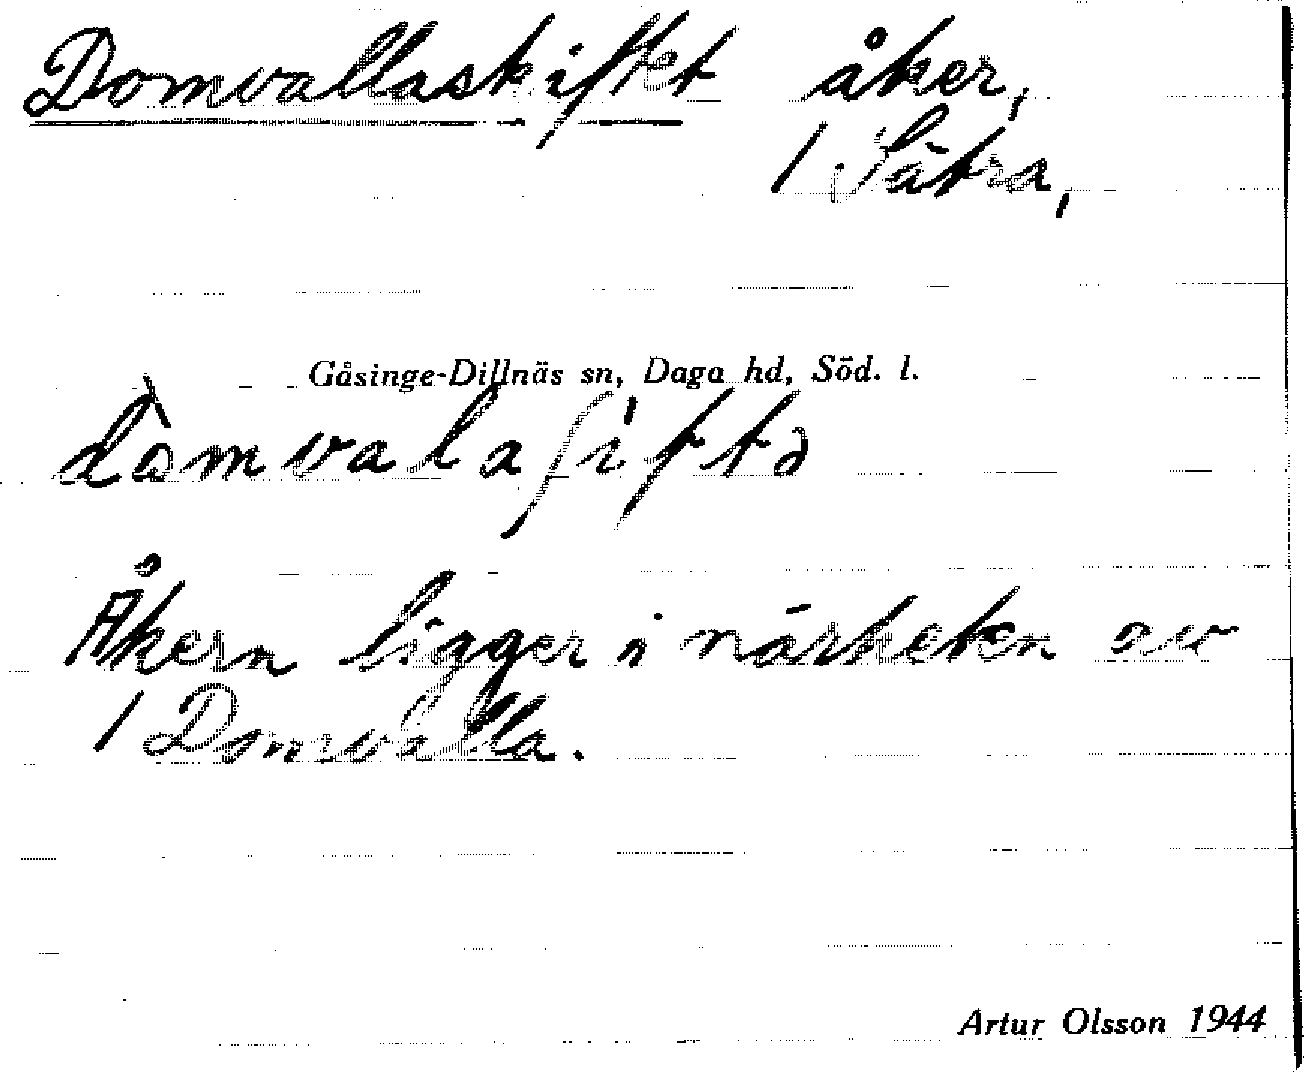 Domvallaskiftet åker,
/ Sätra,
Gåsinge-Dillnäs sn, Daga hd, Söd. l.
dòmvalaʃiftə
Åkern ligger i närheten av
/ Domvalla.
Artur Olsson 1944